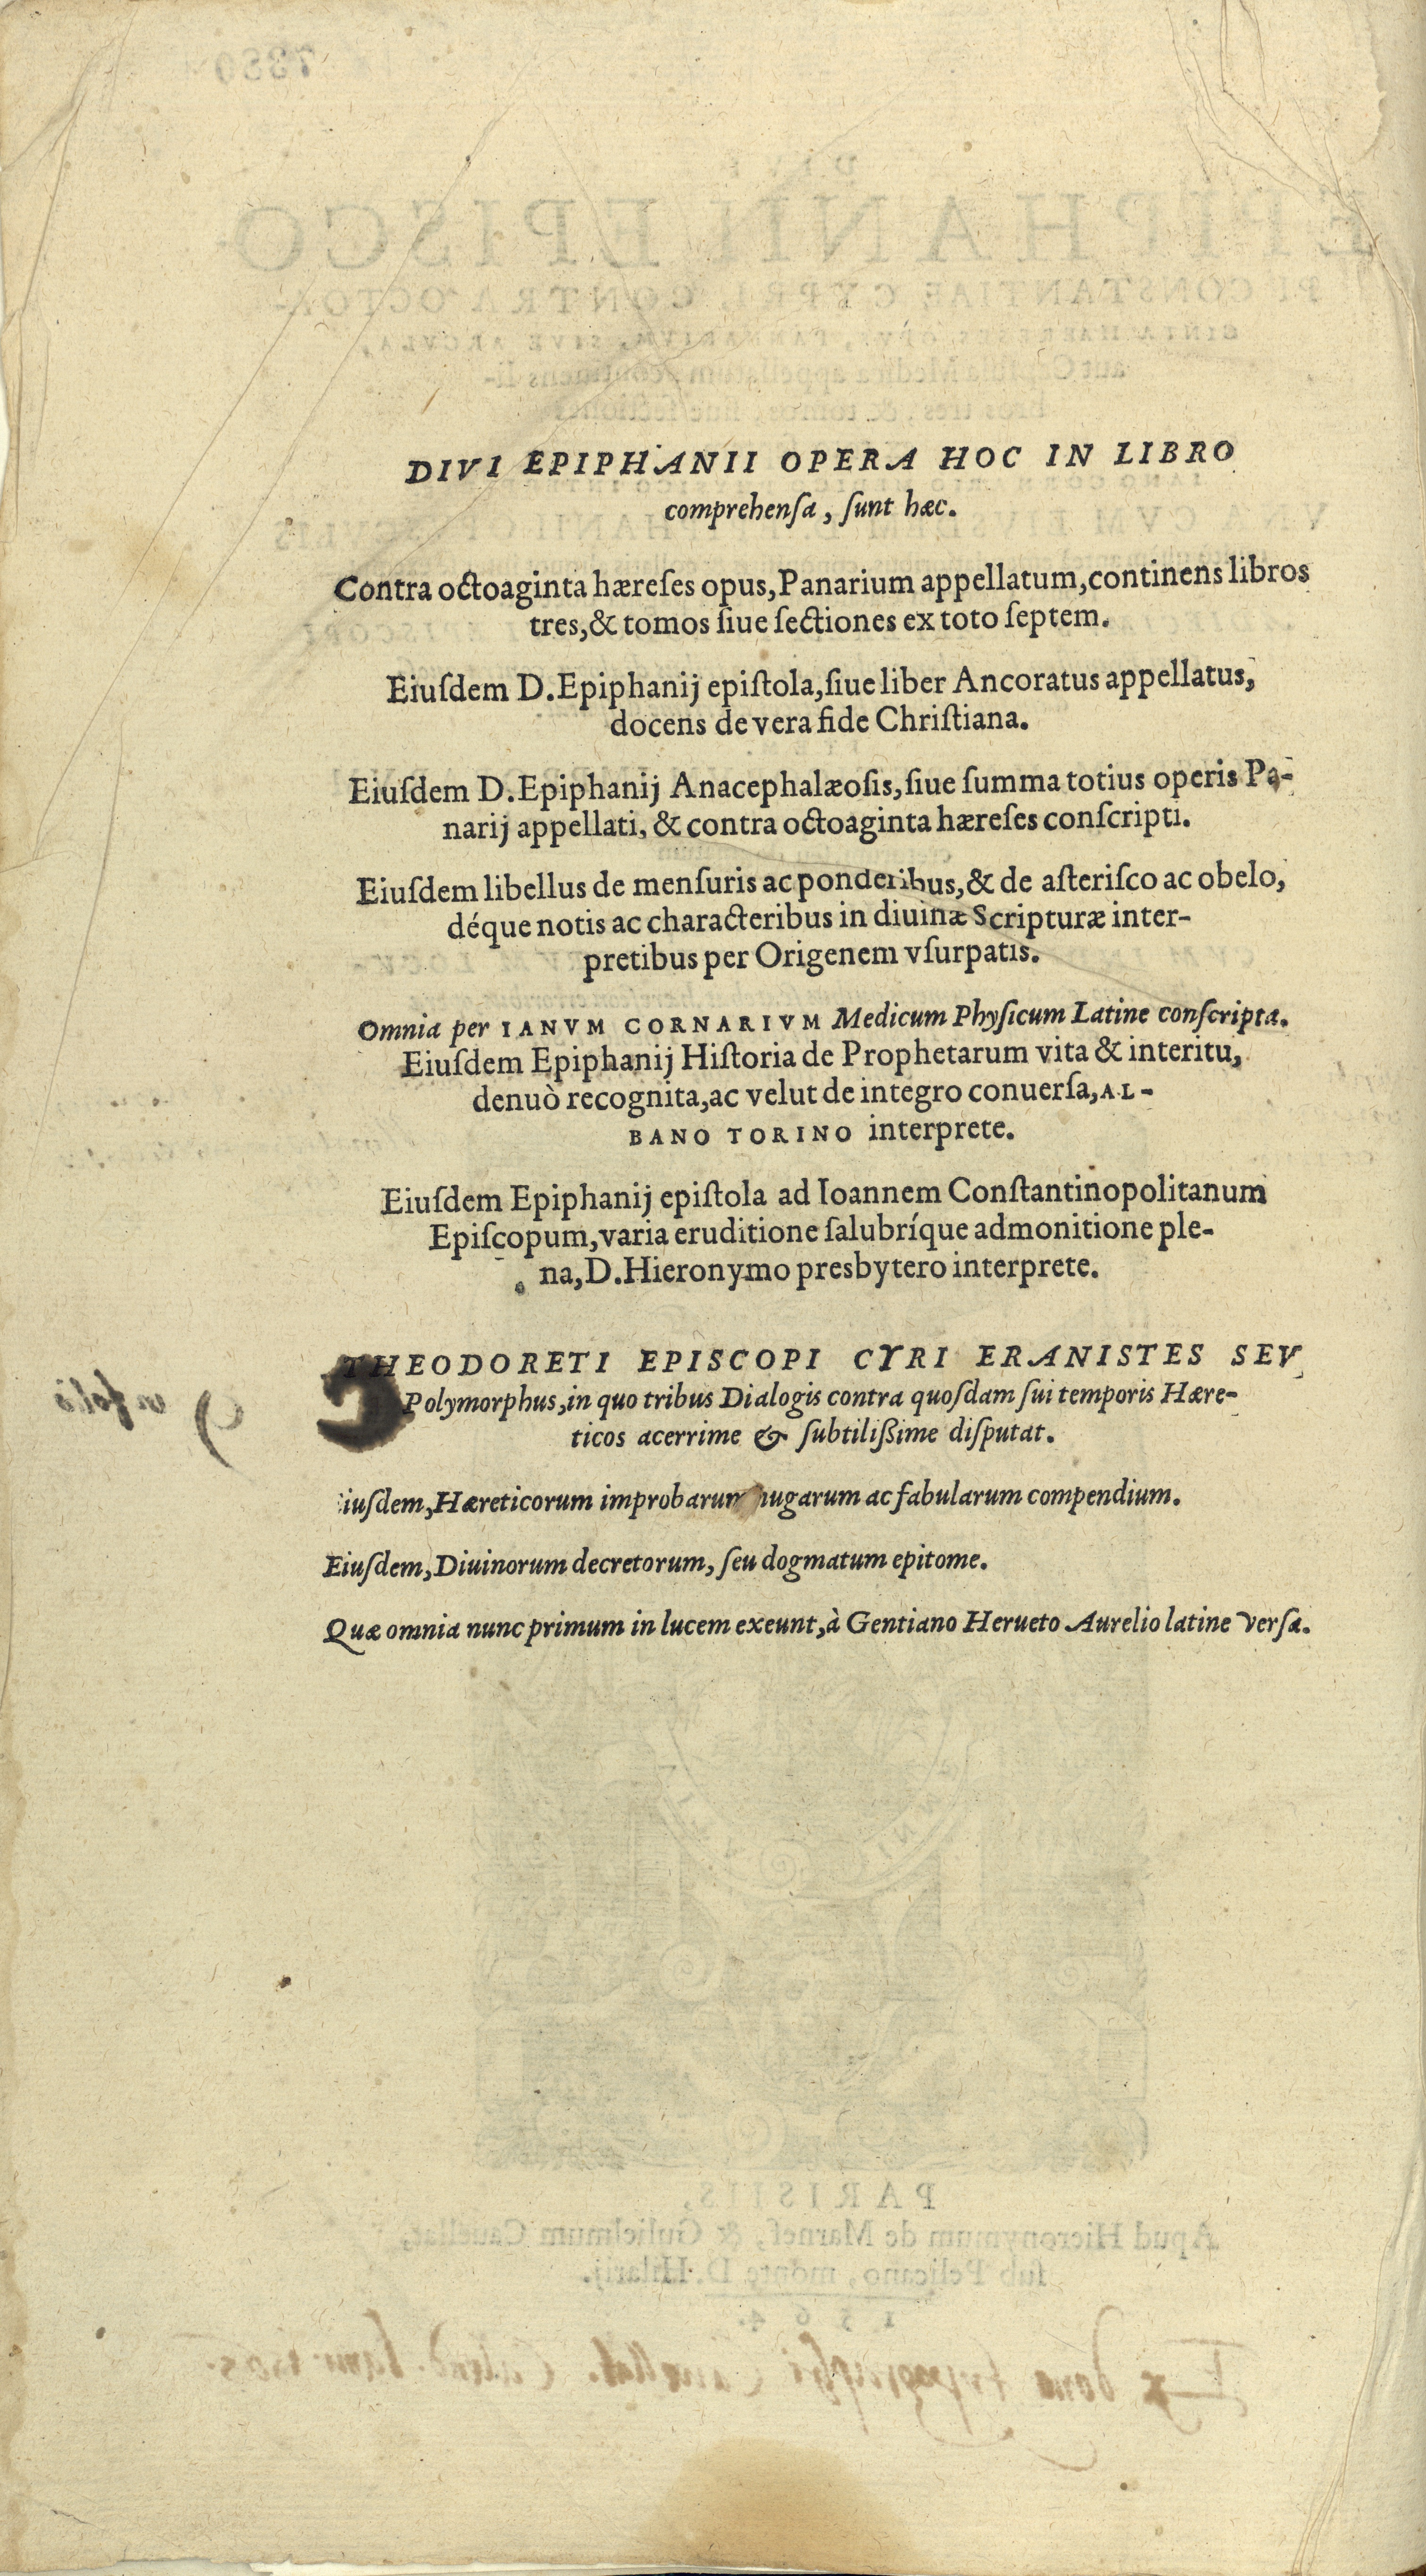 DIVI EPIPHANII OPERA HOC IN LIBRO
comprehenſa, ſunt hæc.
Contra octoaginta hæreſes opus, Panarium appellatum, continens libros
tres, & tomos ſiue ſectiones ex toto ſeptem.
Eiuſdem D. Epiphanij epiſtola, ſiue liber Ancoratus appellatus,
docens de vera fide Chriſtiana.
Eiuſdem D. Epiphanij Anacephalæoſis, ſiue ſumma totius operis Pa-
narij appellati, & contra octoaginta hæreſes conſcripti.
Eiuſdem libellus de menſuris ac ponderibus, & de aſteriſco ac obelo,
déque notis ac characteribus in diuinæ Scripturæ inter-
pretibus per Origenem vſurpatis.
Omnia per IANVM CORNARIVM Medicum Phyſicum Latine conſcripta.
Eiuſdem Epiphanij Hiſtoria de Prophetarum vita & interitu,
denuò recognita, ac velut de integro conuerſa, AL-
BANO TORINO interprete.
Eiuſdem Epiphanij epiſtola ad Ioannem Conſtantinopolitanum
Epiſcopum, varia eruditione ſalubríque admonitione ple-
na, D. Hieronymo presbytero interprete.
THEODORETI EPISCOPI CYRI ERANISTES SEV
Polymorphus, in quo tribus Dialogis contra quoſdam ſui temporis Hære-
ticos acerrime & ſubtilißime diſputat.
Eiuſdem, Hæreticorum improbarum nugarum ac fabularum compendium.
Eiuſdem, Diuinorum decretorum, ſeu dogmatum epitome.
Quæ omnia nunc primum in lucem exeunt, à Gentiano Herueto Aurelio latine verſa.